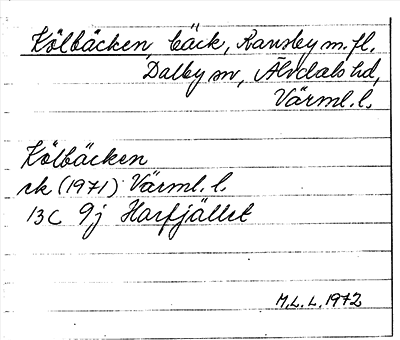 Kölbäcken, bäck, Ransby m. fl.
Dalby sn, Älvdals hd,
Värml. l.
Kölbäcken
ek (1971) Värml. l.
13C 9j Harfjället
M.L.L. 1972